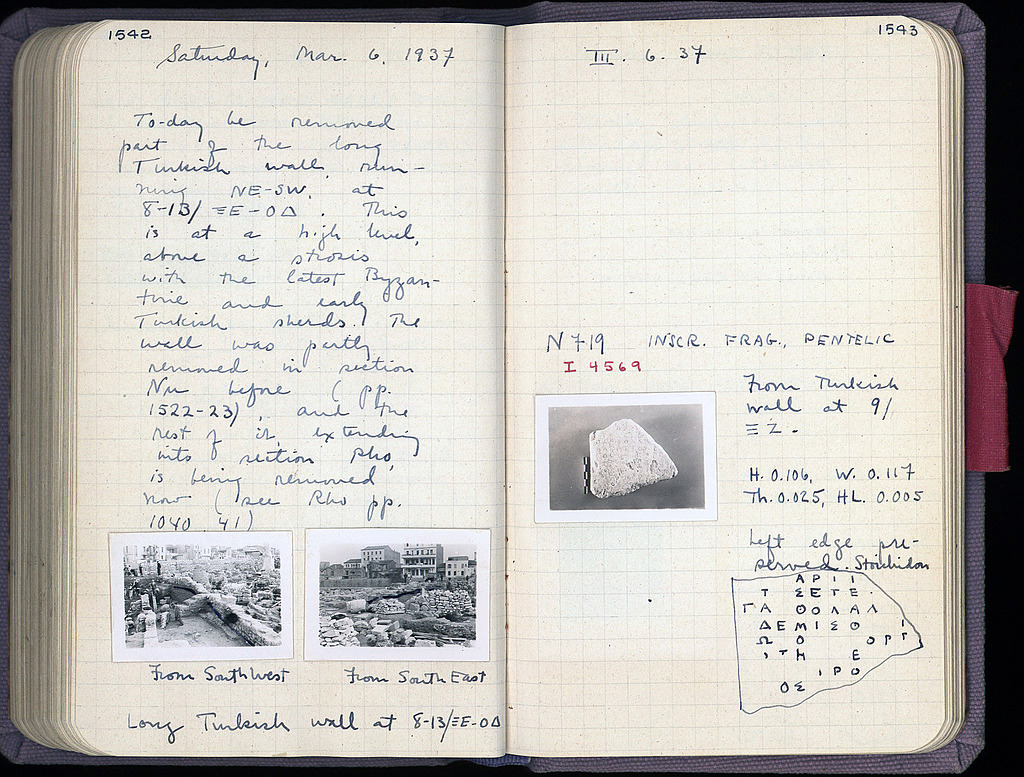 1542
Saturday, Mar. 6, 1937
To-day be removed
part of the long
Turkish wall, run-
ning NE-SW, at
8-13/ΞE-OΔ. This
is at a high level,
above a strosis
with the latest Byzan-
tine and early
Turkish sherds. The
wall was partly
removed in section
Nu before (pp.
1522-23), and the
rest of it, extending
into section Rho,
is being removed
now (see Rho pp.
1040-41)
From SouthWest
From South East
Long Turkish wall at 8-13/ΞE-OΔ
1543
III. 6. 37
N 719 INSCR. FRAG., PENTELIC
I 4569
From Turkish
wall at 9/
ΞΖ.
H. 0.106, W. 0.117
Th. 0.025, HL. 0.005
Left edge pre-
served. Stoichidon
ΑΡΙΙ
Τ ΣΕΤΕ.
ΓΑ ΘΟΛΑΛ
ΔΕΜΙΣΟ Ι
Ω Ο ΟΡΓ
ΤΗ Ε
ΙΡΟ
ΟΣ